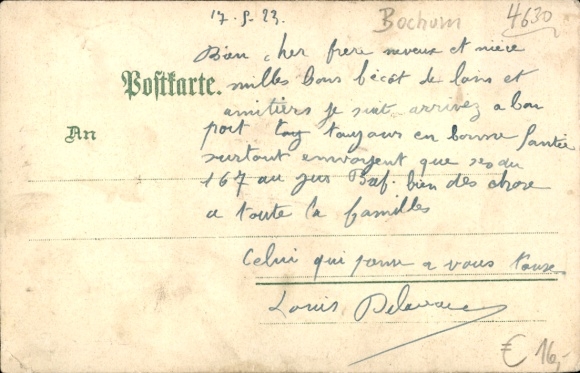 17.5.23.
Bochum
4630
Bien cher frère neveux et nièce
Postkarte.
milles bons bécot de loin et
amitiers je suit arrivez a bon
An
port toujours en bonne santée
surtout envoyent que
167 au jus Baf. bien des chose
a toute la familles
Celui qui panse a vous tous
Louis
€ 16,-